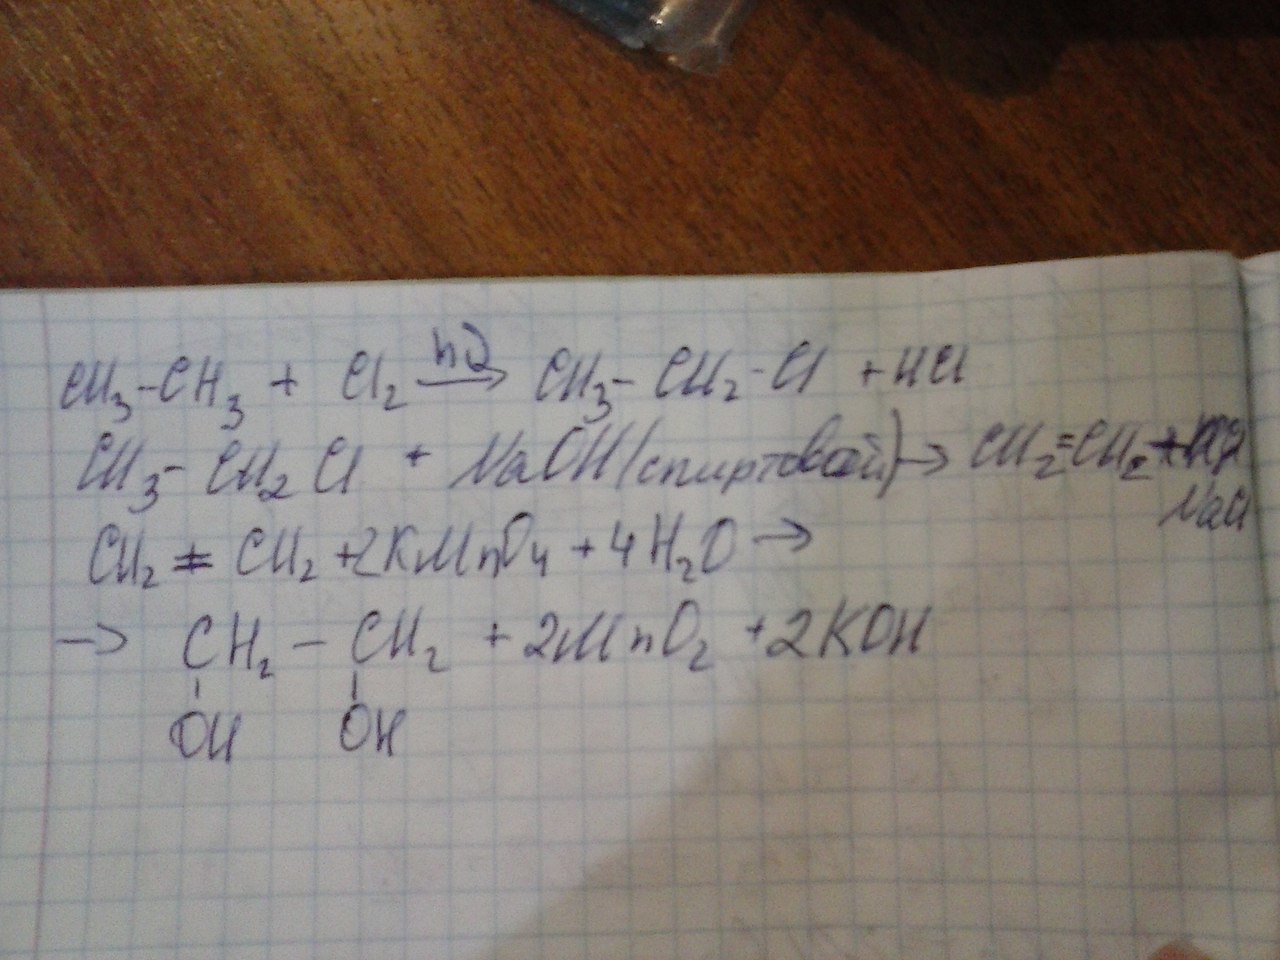 CH₃-CH₃ + Cl₂ hν→ CH₃-CH₂-Cl + HCl
CH₃-CH₂Cl + NaOH(спиртовой)→ CH₂=CH₂ +
NaCl
CH₂ = CH₂ +2KMnO₄ +4H₂O →
→ CH₂ - CH₂ + 2MnO₂ +2KOH
OH OH